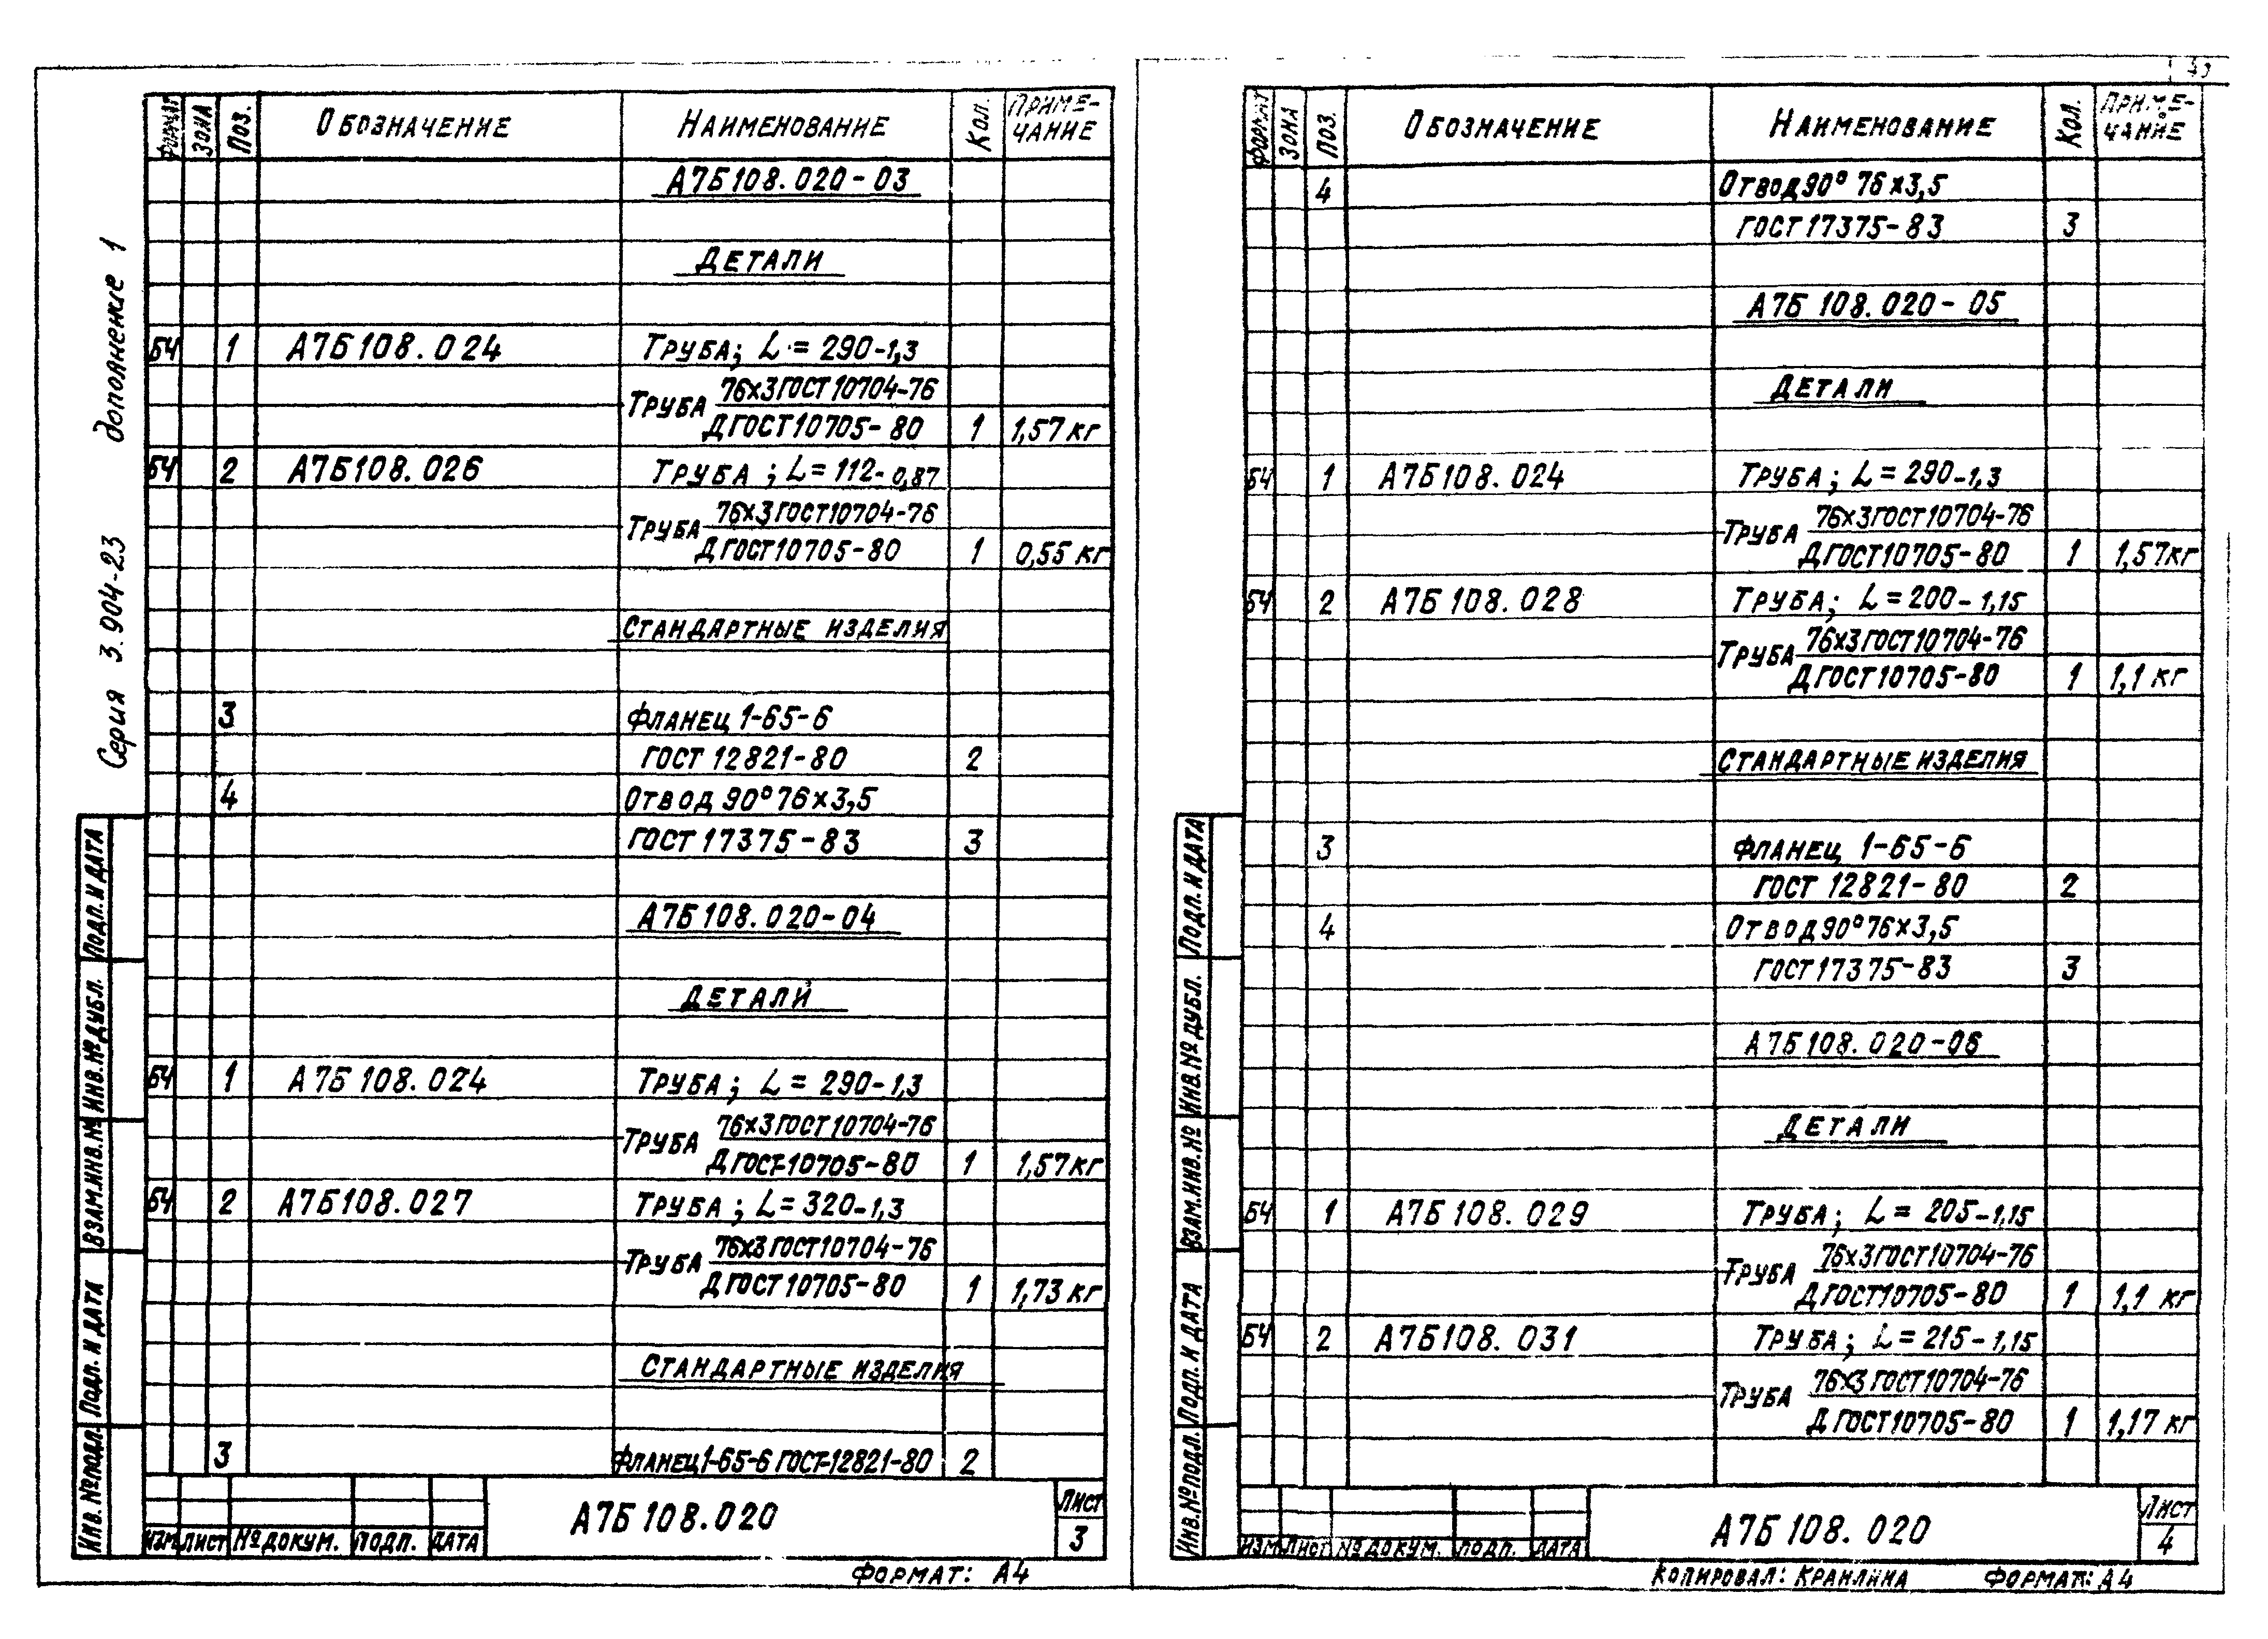 Серия 3.904-23 дополнение 1
ФОРМАТ ЗОНА ПОЗ. ОБОЗНАЧЕНИЕ НАИМЕНОВАНИЕ КОЛ. ПРИМЕ-
ЧАНИЕ
А7Б108.020-03
ДЕТАЛИ
БЧ 1 А7Б108.024 ТРУБА; L = 290-1,3
76х3 ГОСТ 10704-76
ТРУБА
Д ГОСТ 10705-80 1 1,57 кг
БЧ 2 А7Б108.026 ТРУБА; L = 112-0,87
76х3 ГОСТ 10704-76
ТРУБА
Д ГОСТ 10705-80 1 0,55 кг
СТАНДАРТНЫЕ ИЗДЕЛИЯ
3 ФЛАНЕЦ 1-65-6
ГОСТ 12821-80 2
4 ОТВОД 90° 76х3,5
ГОСТ 17375-83 3
А7Б108.020-04
ДЕТАЛИ
БЧ 1 А7Б108.024 ТРУБА; L = 290-1,3
76х3 ГОСТ 10704-76
ТРУБА
Д ГОСТ-10705-80 1 1,57 кг
БЧ 2 А7Б108.027 ТРУБА; L = 320-1,3
76х3 ГОСТ 10704-76
ТРУБА
Д ГОСТ 10705-80 1 1,73 кг
СТАНДАРТНЫЕ ИЗДЕЛИЯ
3 ФЛАНЕЦ 1-65-6 ГОСТ-12821-80 2
ИНВ. № ПОДЛ. ПОДП. И ДАТА ВЗАМ.ИНВ.№ ИНВ.№ ДУБЛ. ПОДП. И ДАТА
ИЗМ ЛИСТ № ДОКУМ. ПОДП. ДАТА
А7Б108.020
ЛИСТ
3
ФОРМАТ: А4
ФОРМАТ ЗОНА ПОЗ. ОБОЗНАЧЕНИЕ НАИМЕНОВАНИЕ КОЛ. ПРИМЕ-
ЧАНИЕ
4 ОТВОД 90° 76х3,5
ГОСТ 17375-83 3
А7Б 108.020-05
ДЕТАЛИ
БЧ 1 А7Б108.024 ТРУБА; L = 290-1,3
76х3 ГОСТ 10704-76
ТРУБА
Д ГОСТ 10705-80 1 1,57 кг
БЧ 2 А7Б108.028 ТРУБА; L = 200-1,15
76х3 ГОСТ 10704-76
ТРУБА
Д ГОСТ 10705-80 1 1,1 кг
СТАНДАРТНЫЕ ИЗДЕЛИЯ
3 ФЛАНЕЦ 1-65-6
ГОСТ 12821-80 2
4 ОТВОД 90° 76х3,5
ГОСТ 17375-83 3
А7Б108.020-06
ДЕТАЛИ
БЧ 1 А7Б108.029 ТРУБА; L = 205-1,15
76х3 ГОСТ 10704-76
ТРУБА
Д ГОСТ 10705-80 1 1,1 кг
БЧ 2 А7Б108.031 ТРУБА; L = 215-1,15
76х3 ГОСТ 10704-76
ТРУБА
Д ГОСТ 10705-80 1 1,17 кг
ИНВ.№ ПОДЛ. ПОДП. И ДАТА ВЗАМ.ИНВ.№ ИНВ.№ ДУБЛ. ПОДП. И ДАТА
ИЗМ ЛИСТ № ДОКУМ. ПОДП. ДАТА
А7Б108.020
ЛИСТ
4
КОПИРОВАЛ: ФОРМАТ: А4